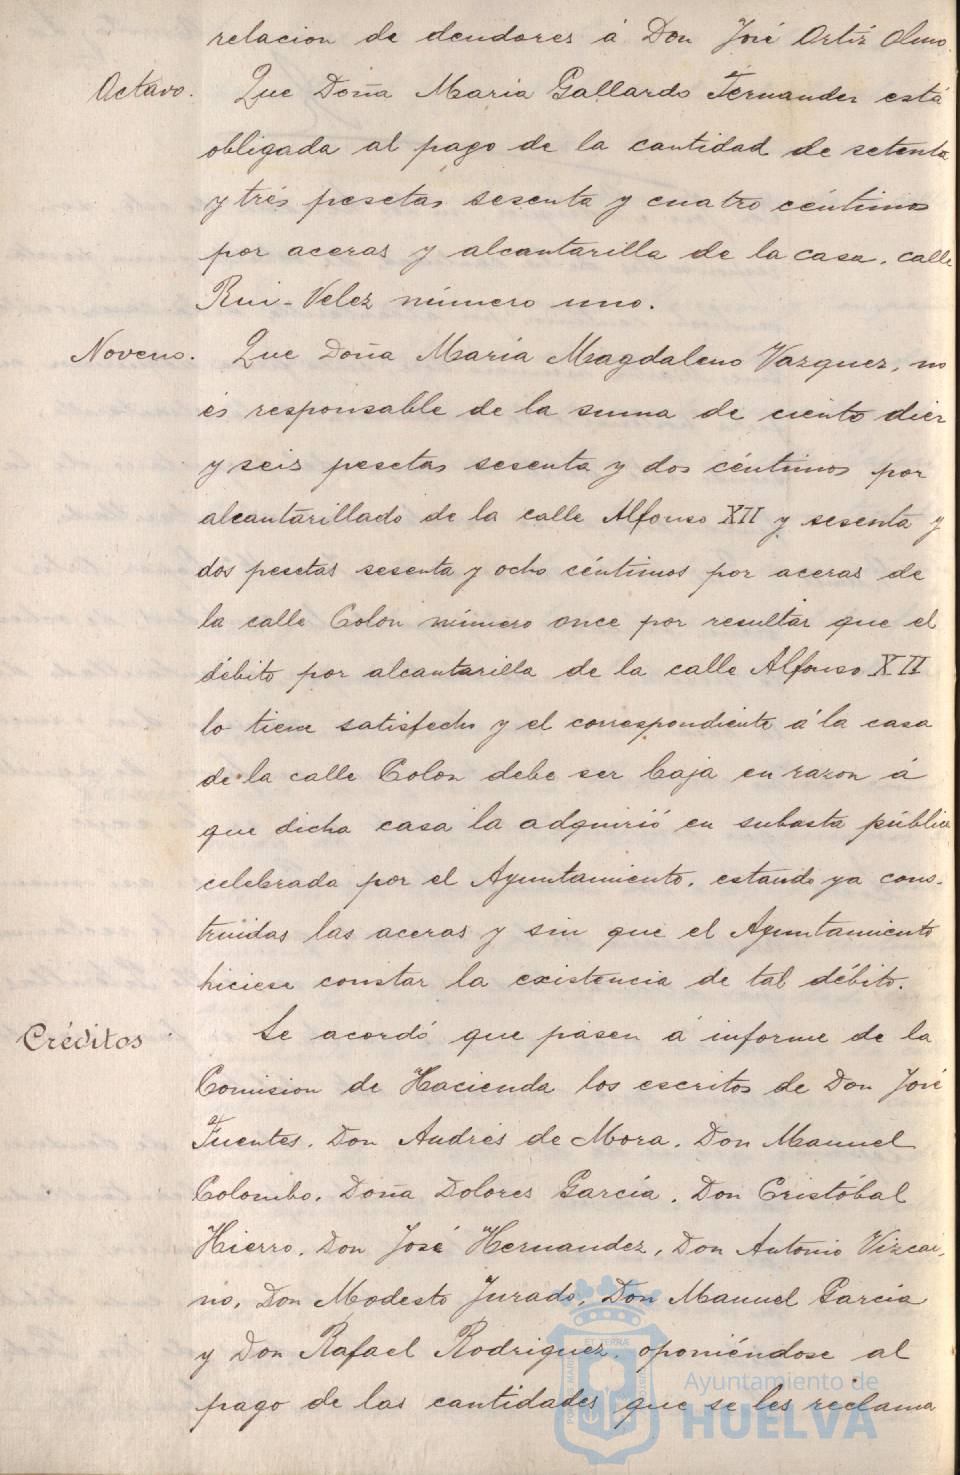 relacion de deudores á Don José Ortiz Olmo.
Octavo. Que Doña Maria Gallardo Fernandez está
obligada al pago de la cantidad de setenta
y tres pesetas sesenta y cuatro céntimos
por aceras y alcantarilla de la casa, calle
Rui-Velez número uno.
Noveno. Que Doña María Magdaleno Vazquez, no
és responsable de la suma de ciento diez
y seis pesetas sesenta y dos céntimos por
alcantarillado de la calle Alfonso XII y sesenta y
dos pesetas sesenta y ocho céntimos por aceras de
la calle Colon número once por resultar que el
débito por alcantarilla de la calle Alfonso XII
lo tiene satisfecho y el correspondiente á la casa
de la calle Colon debe ser baja en razon á
que dicha casa la adquirió en subasta pública
celebrada por el Ayuntamiento, estando ya cons-
truidas las aceras y sin que el Ayuntamiento
hiciese constar la existencia de tal débito.
Créditos Se acordó que pasen á informe de la
Comision de Hacienda los escritos de Don José
Fuentes, Don Andrés de Mora, Don Manuel
Colombo, Doña Dolores García, Don Cristóbal
Hierro, Don José Hernandez, Don Antonio Vizcai-
no, Don Modesto Jurado, Don Manuel García
y Don Rafael Rodriguez, oponiéndose al
pago de las cantidades que se les reclama
Ayuntamiento de
HUELVA